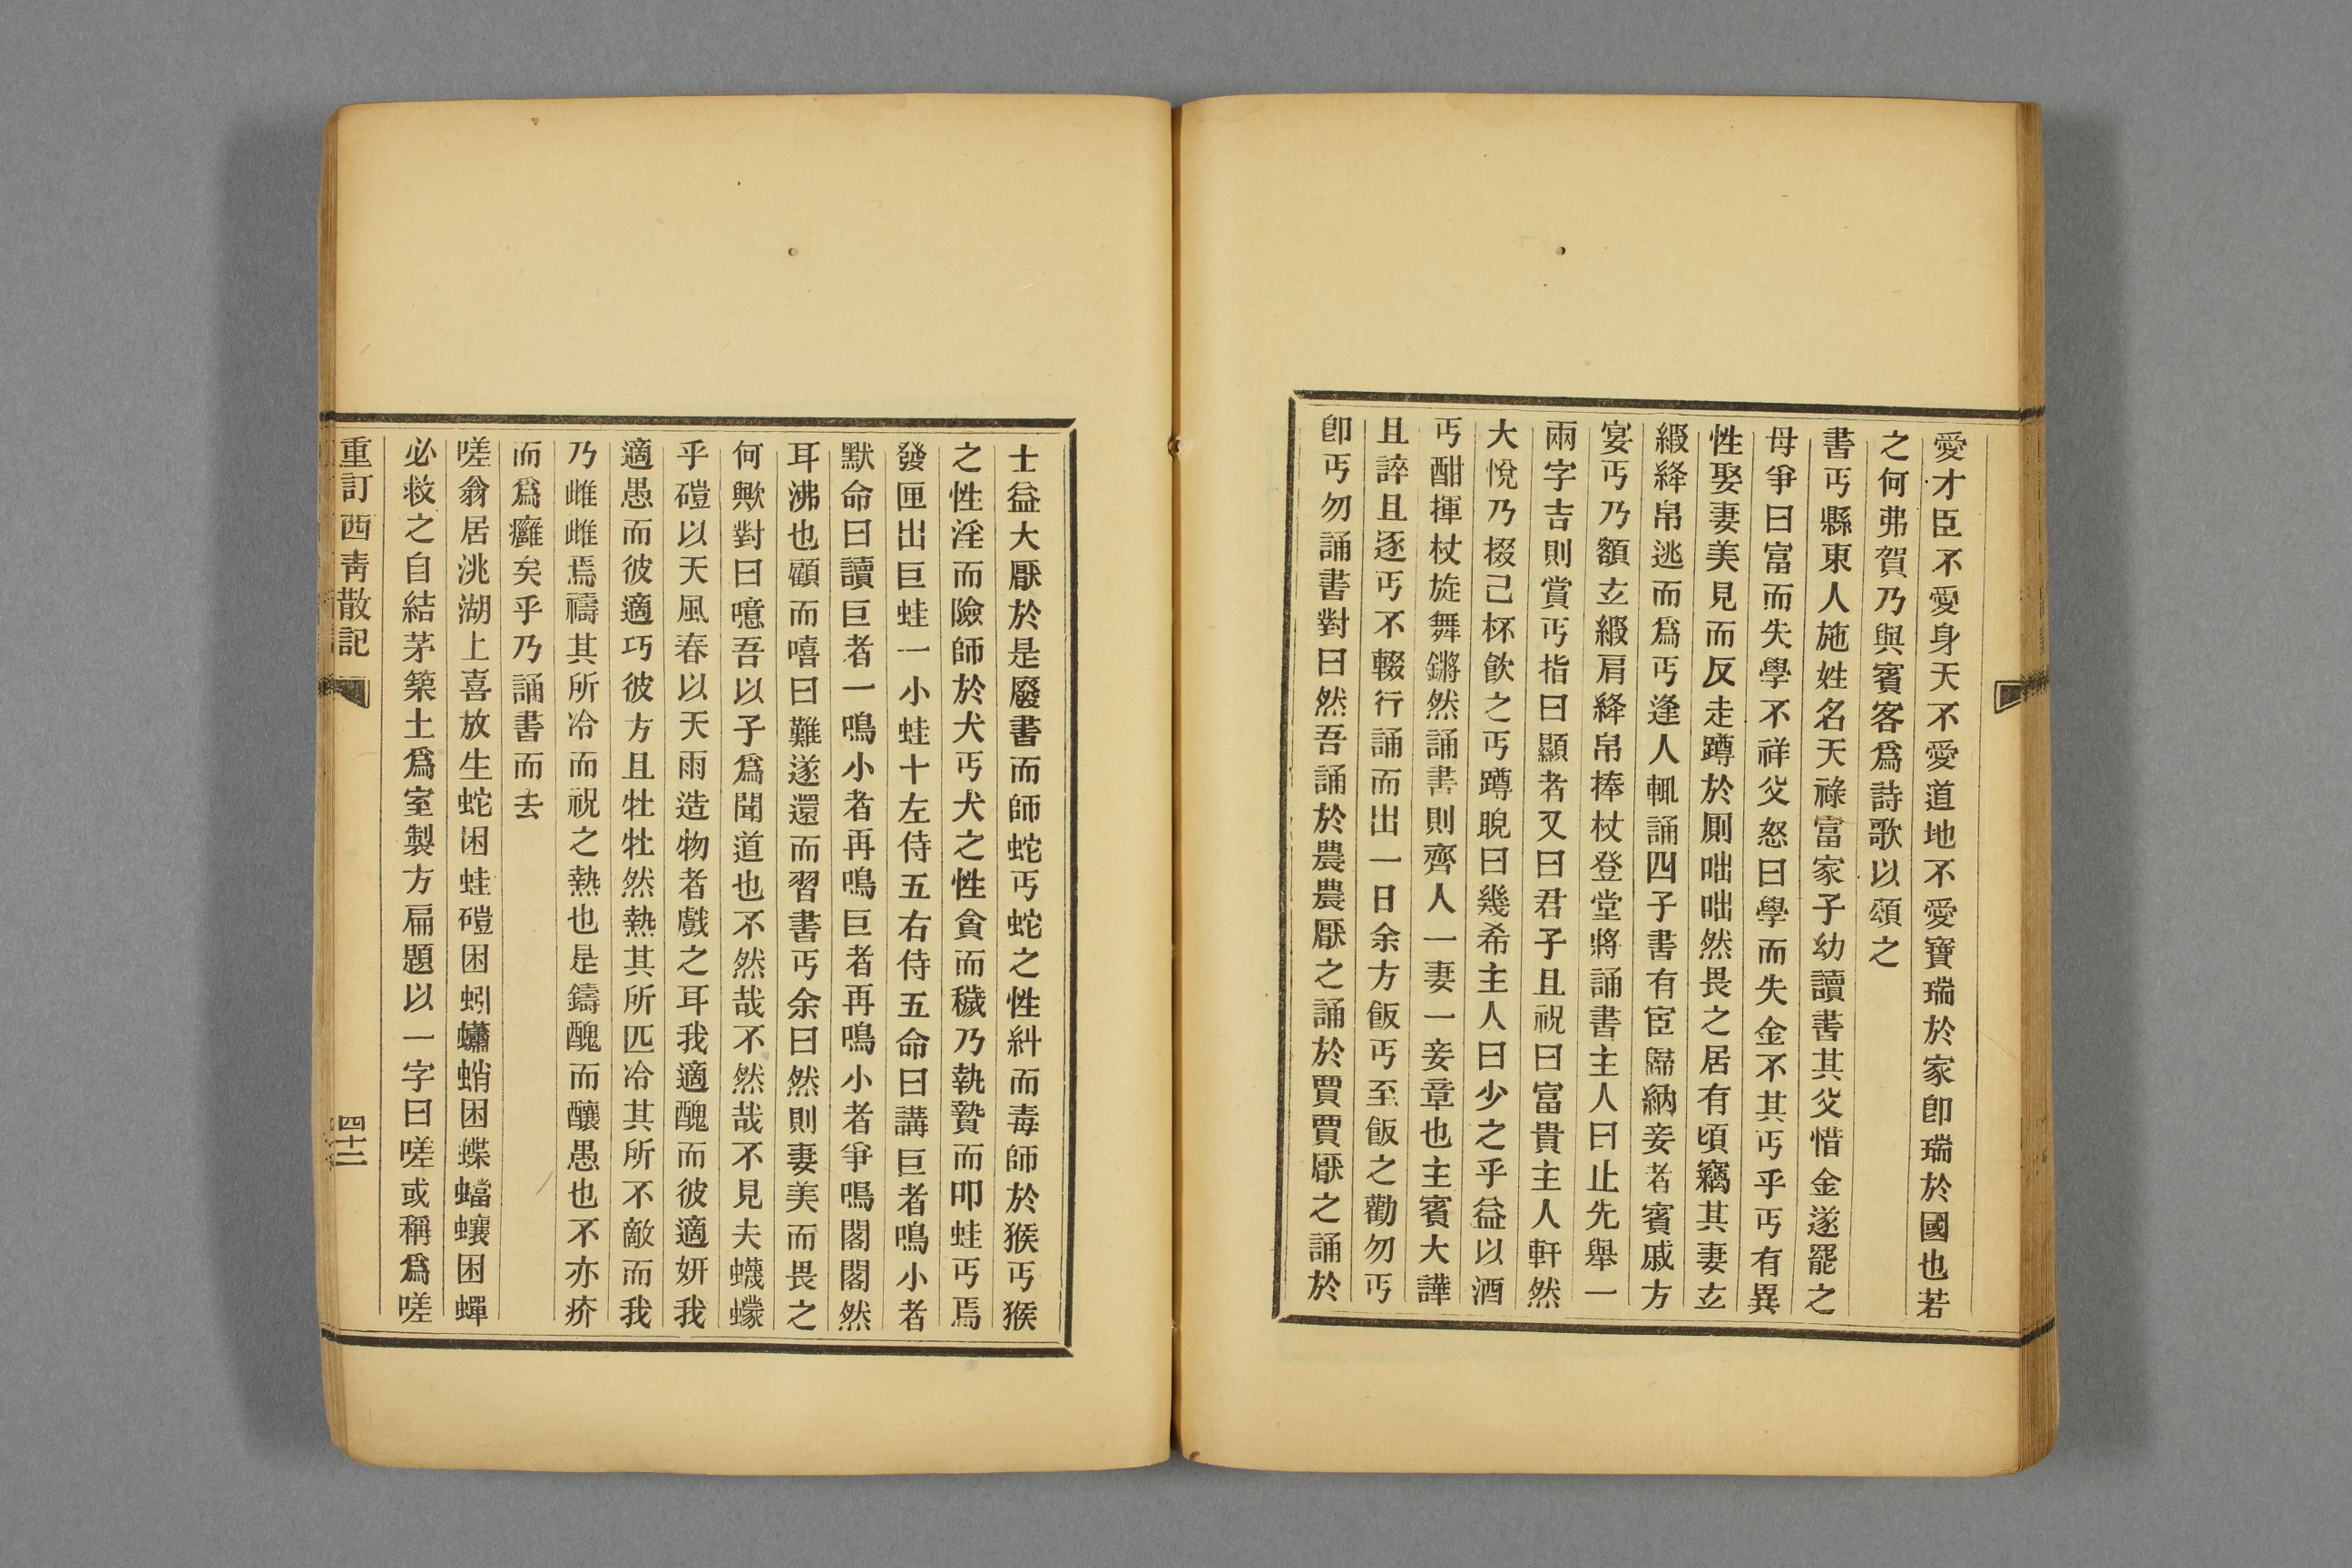 愛才臣不愛身天不愛道地不愛寶瑞於家卽瑞於國也若
之何弗賀乃與賓客爲詩歌以頌之
書丐縣東人施姓名天祿富家子幼讀書其父惜金遂罷之
母爭曰富而失學不祥父怒曰學而失金不其丐乎丐有異
性娶妻美見而反走蹲於厠咄咄然畏之居有頃竊其妻玄
緞絳帛逃而爲丐逢人輒誦四子書有宦歸納妾者賓戚方
宴丐乃額玄緞肩絳帛捧杖登堂將誦書主人曰止先舉一
兩字吉則賞丐指曰顯者又曰君子且祝曰富貴主人軒然
大悅乃掇己杯飮之丐蹲睨曰幾希主人曰少之乎益以酒
丐酣揮杖旋舞鏘然誦書則齊人一妻一妾章也主賓大譁
且誶且逐丐不輟行誦而出一日余方飯丐至飯之勸勿丐
卽丐勿誦書對曰然吾誦於農農厭之誦於賈賈厭之誦於
士益大厭於是廢書而師蛇丐蛇之性糾而毒師於猴丐猴
之性淫而險師於犬丐犬之性貪而穢乃執贄而叩蛙丐焉
發匣出巨蛙一小蛙十左侍五右侍五命曰講巨者鳴小者
默命曰讀巨者一鳴小者再鳴巨者再鳴小者爭鳴閣閣然
耳沸也顧而嘻曰難遂還而習書丐余曰然則妻美而畏之
何歟對曰噫吾以子爲聞道也不然哉不然哉不見夫蠛蠓
乎磑以天風春以天雨造物者戲之耳我適醜而彼適妍我
適愚而彼適巧彼方且牡牡然熱其所匹冷其所不敵而我
乃雌雌焉禱其所冷而祝之熱也是鑄醜而釀愚也不亦疥
而爲癰矣乎乃誦書而去
嗟翁居洮湖上喜放生蛇困蛙磑困蚓蠨蛸困蝶蟷蠰困蟬
必救之自結茅築土爲室製方扁題以一字曰嗟或稱爲嗟
重訂西靑散記
四十二